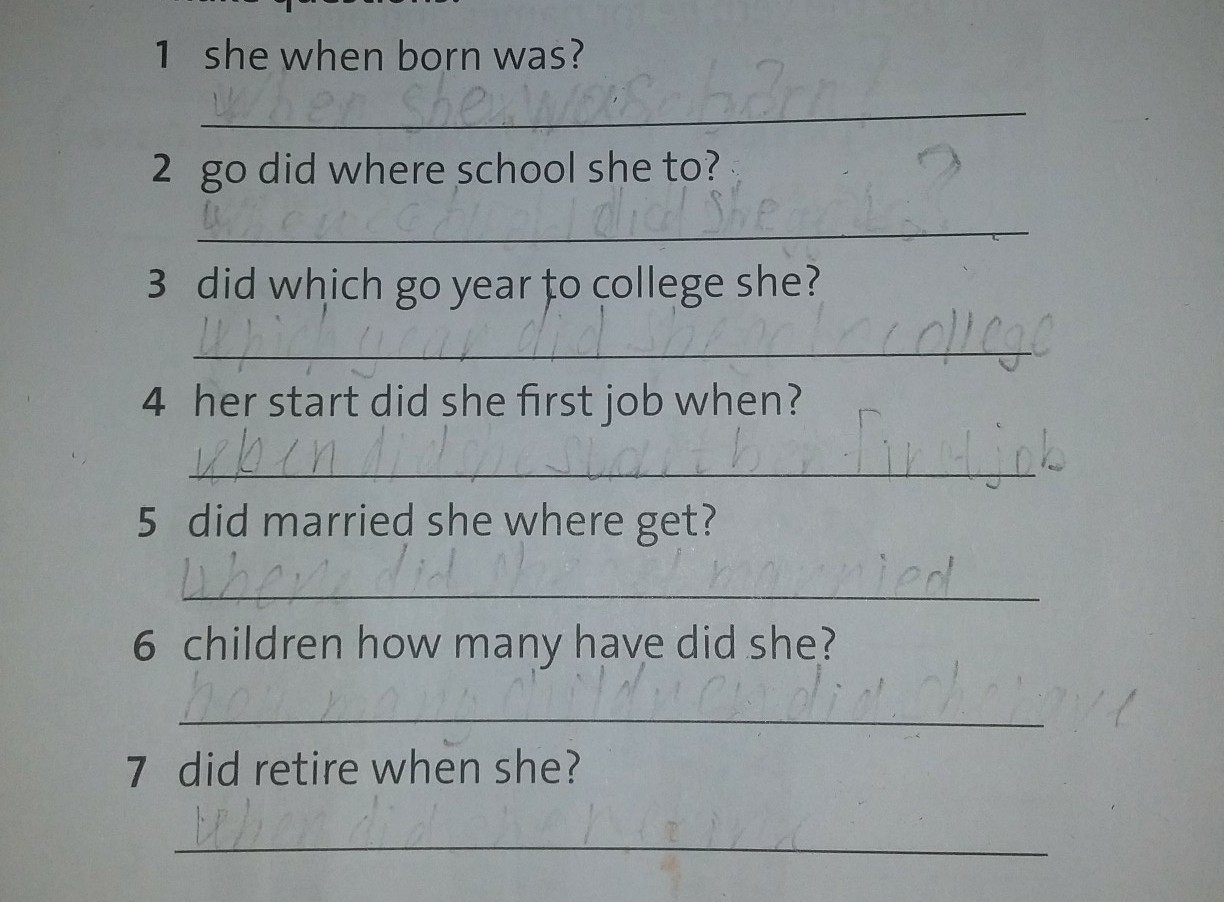 make questions.
1 she when born was?
when she was born?
2 go did where school she to?
did she ?
3 did which go year to college she?
which year did she go to college
4 her start did she first job when?
when did she start her first job
5 did married she where get?
where did she get married
6 children how many have did she?
how many children did she have
7 did retire when she?
when did she